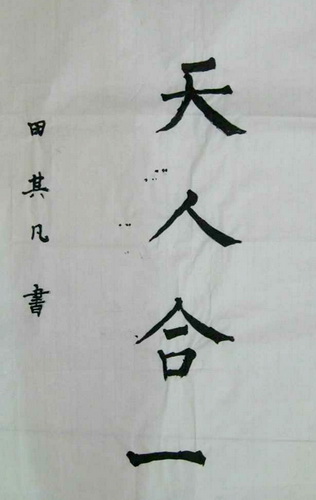 天人合一
田其凡書